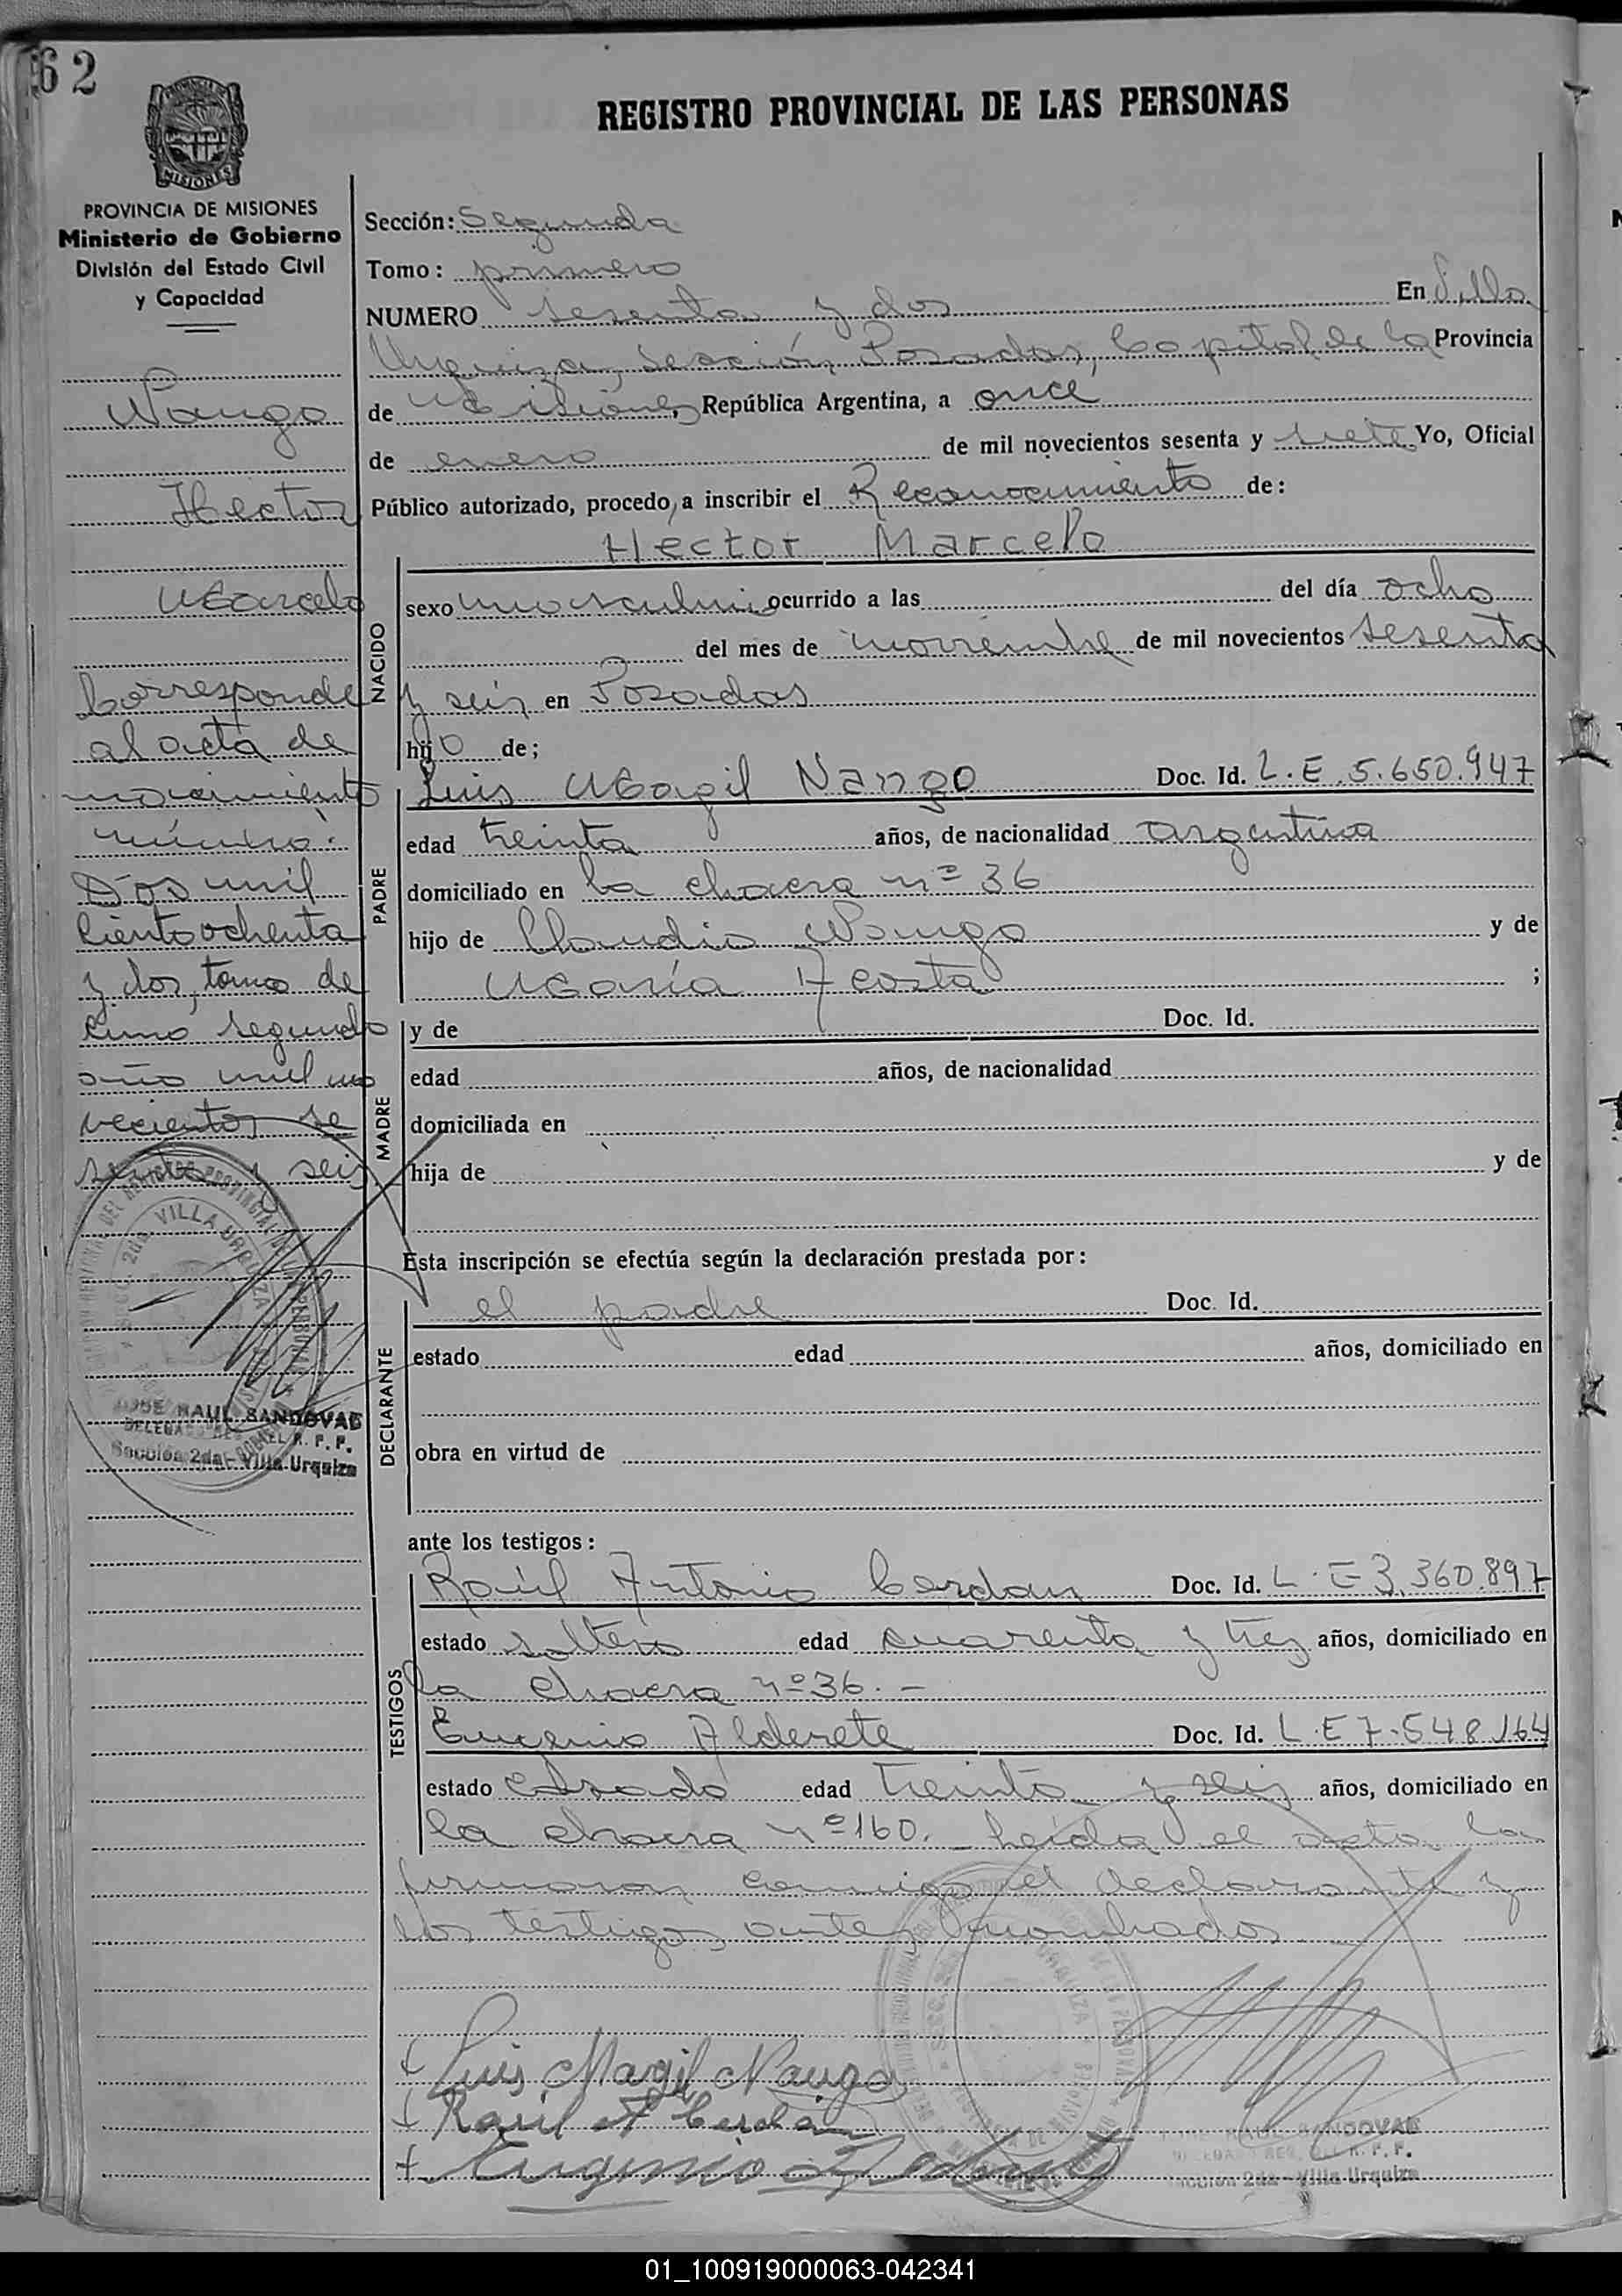 62
REGISTRO PROVINCIAL DE LAS PERSONAS
MISIONES
PROVINCIA DE MISIONES
Ministerio de Gobierno
División del Estado Civil
y Capacidad
Nango
Hector
Marcelo
Corresponde
al acta de
nacimiento
número:
Dos mil
ciento ochenta
y dos, tomo de
cimo segundo
año mil no
vecientos se
senta y seis
VILLA URQUIZA
JOSE RAUL SANDOVAL
DELEGADO REG. DEL R. P. P.
Sección 2da - Villa Urquiza
Sección: Segunda
Tomo: primero
NUMERO sesenta y dos En Villa
Urquiza, Sección Posadas, Capital de la Provincia
de Misiones, República Argentina, a once
de enero de mil novecientos sesenta y siete Yo, Oficial
Público autorizado, procedo, a inscribir el Reconocimiento de:
Hector Marcelo
NACIDO
sexo masculino ocurrido a las del día ocho
del mes de noviembre de mil novecientos sesenta
y seis en Posadas
hijo de;
PADRE
Luis Magil Nango Doc. Id. L.E. 5.650.947
edad treinta años, de nacionalidad argentina
domiciliado en la chacra nº 36
hijo de Claudio Nango y de
María Acosta ;
MADRE
y de Doc. Id.
edad años, de nacionalidad
domiciliada en
hija de y de
Esta inscripción se efectúa según la declaración prestada por:
DECLARANTE
el padre Doc. Id.
estado edad años, domiciliado en
obra en virtud de
ante los testigos:
TESTIGOS
Raúl Antonio Cerdan Doc. Id. L.E 3.360.897
estado soltero edad cuarenta y tres años, domiciliado en
la chacra nº 36. -
Eugenio Alderete Doc. Id. L.E 7.548.164
estado casado edad treinta y seis años, domiciliado en
la chacra nº 160. Leída el acta la
firmaron conmigo el declarante y
los testigos antes nombrados
+ Luis Magil Nango
+ Raúl A Cerdán
+ Eugenio
JOSE RAUL SANDOVAL
DELEGADO REG. DEL R. P. P.
Sección 2da - Villa Urquiza
01_100919000063-042341